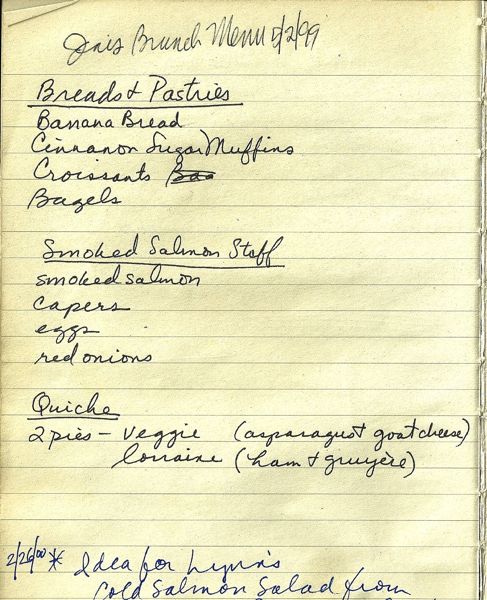 Jnis Brunch Menu 5/2/99
Breads & Pastries
Banana Bread
Cinnanon Sugar Muffins
Croissants
Bagels
Smoked Salmon Stuff
smoked salmon
capers
eggs
red onions
Quiche
2 pies - Veggie (asparagus & goat cheese)
lorraine (ham & gruyère)
2/26/00 * Idea for Lynn's
Cold Salmon Salad from